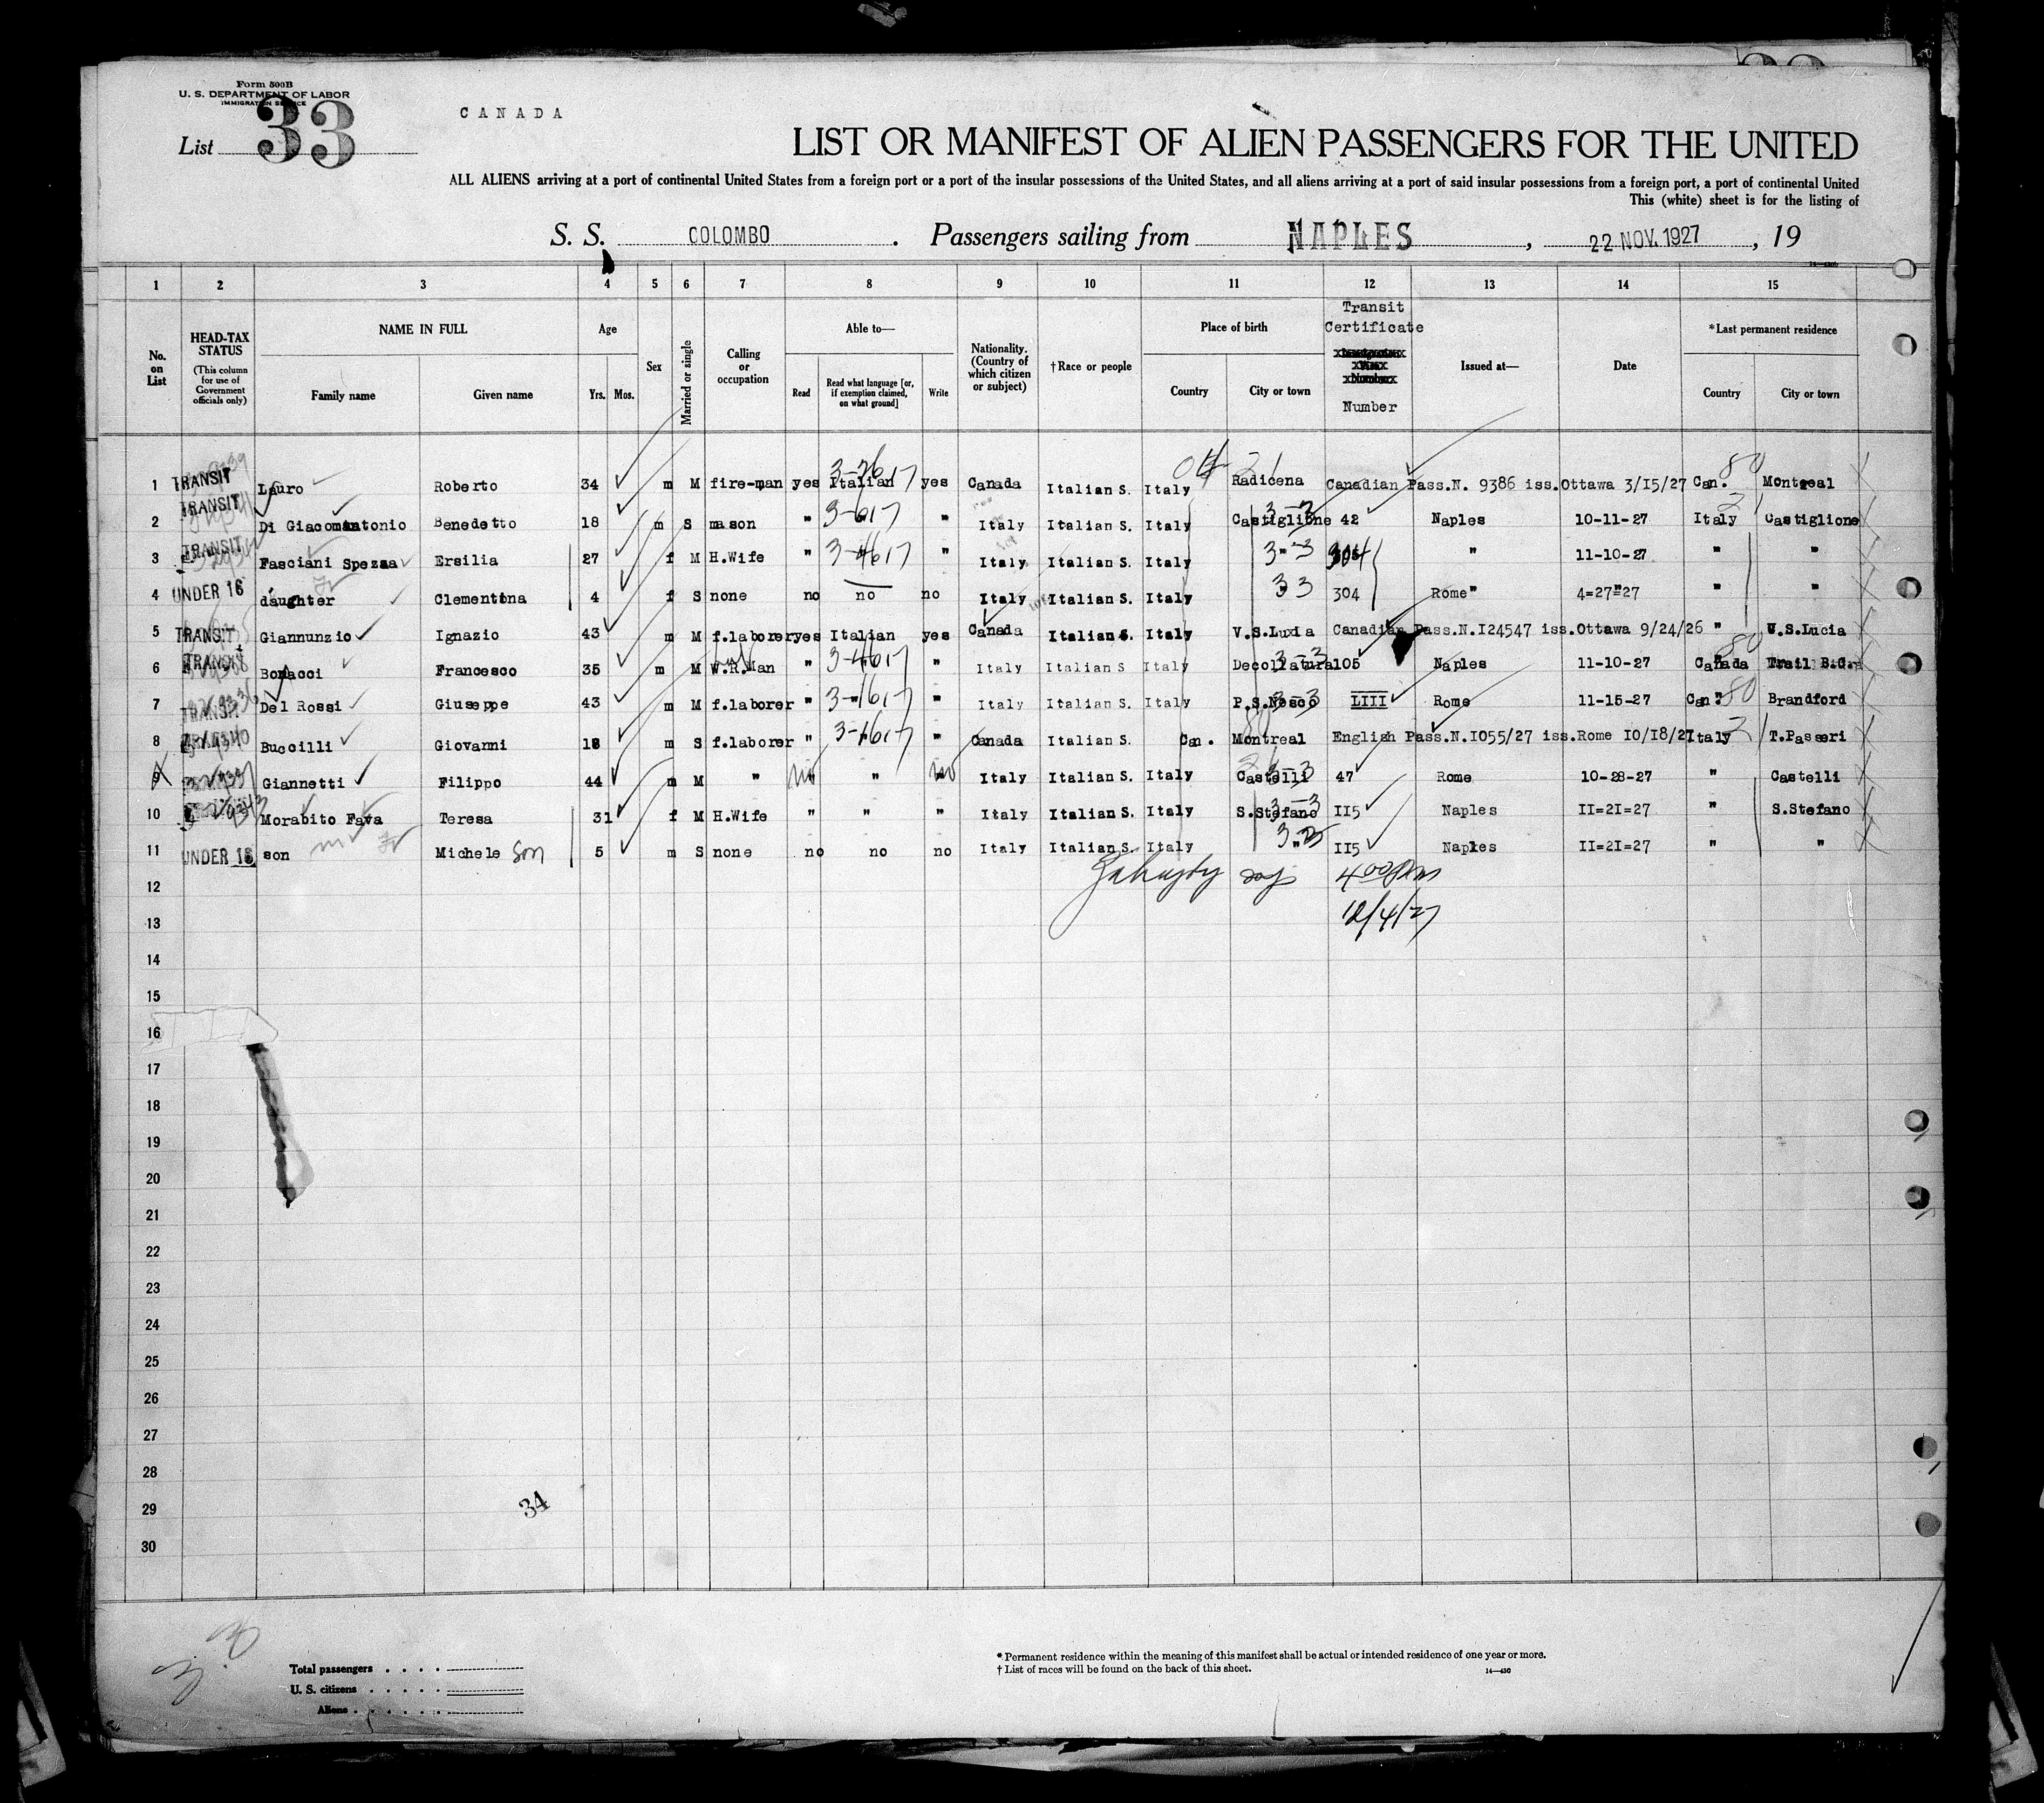 Form 500B
U. S. DEPARTMENT OF LABOR
IMMIGRATION SERVICE
List 33
CANADA
LIST OR MANIFEST OF ALIEN PASSENGERS FOR THE UNITED
ALL ALIENS arriving at a port of continental United States from a foreign port or a port of the insular possessions of the United States, and all aliens arriving at a port of said insular possessions from a foreign port, a port of continental United
This (white) sheet is for the listing of
S. S. COLOMBO . Passengers sailing from NAPLES , 22 NOV. 1927 , 19
1 2 3 4 5 6 7 8 9 10 11 12 13 14 15
No. on List
HEAD-TAX STATUS (This column for use of Government officials only)
NAME IN FULL
Family name Given name
Age
Yrs. Mos.
Sex
Married or single
Calling or occupation
Able to—
Read
Read what language [or, if exemption claimed, on what ground]
Write
Nationality. (Country of which citizen or subject)
†Race or people
Place of birth
Country City or town
Transit Certificate Number
Issued at—
Date
*Last permanent residence
Country City or town
1 TRANSIT Lauro Roberto 34 m M fire-man yes Italian yes Canada Italian S. Italy Radicena Canadian Pass.N. 9386 iss.Ottawa 3/15/27 Can. Montreal
2 TRANSIT Di Giacomantonio Benedetto 18 m S mason " " Italy Italian S. Italy Castiglione 42 Naples 10-11-27 Italy Castiglione
3 TRANSIT Fasciani Spezza Ersilia 27 f M H.Wife " " " Italy Italian S. Italy " 304 " 11-10-27 " "
4 UNDER 16 daughter Clementina 4 f S none no no no Italy Italian S. Italy 304 Rome" 4=27=27 " "
5 TRANSIT Giannunzio Ignazio 43 m M f.laborer yes Italian yes Canada Italian S. Italy V.S.Luxia Canadian Pass.N.I24547 iss.Ottawa 9/24/26 " V.S.Lucia
6 TRANSIT Bonacci Francesco 35 m M W.R.Man " " " Italy Italian S Italy Decollatura 105 Naples 11-10-27 Canada Trail B.C.
7 TRANSIT Del Rossi Giuseppe 43 m M f.laborer " " " Italy Italian S. Italy LIII Rome 11-15-27 Can. Brandford
8 TRANSIT Buccilli Giovanni 18 m S f.laborer " " " Canada Italian S. Can. Montreal English Pass.N.I055/27 iss.Rome I0/I8/27 Italy T.Passeri
9 Giannetti Filippo 44 m M " no " no Italy Italian S. Italy Castelli 47 Rome 10-28-27 " Castelli
10 Morabito Fava Teresa 31 f M H.Wife " " " Italy Italian S. Italy S.Stefano II5 Naples II=2I=27 " S.Stefano
11 UNDER 16 son Michele son 5 m S none no no no Italy Italian S. Italy " II5 Naples II=2I=27 " "
12
12/4/27
13
14
15
16
17
18
19
20
21
22
23
24
25
26
27
28
29
30
34
Total passengers
U. S. citizens
Aliens
* Permanent residence within the meaning of this manifest shall be actual or intended residence of one year or more.
† List of races will be found on the back of this sheet.
14—430